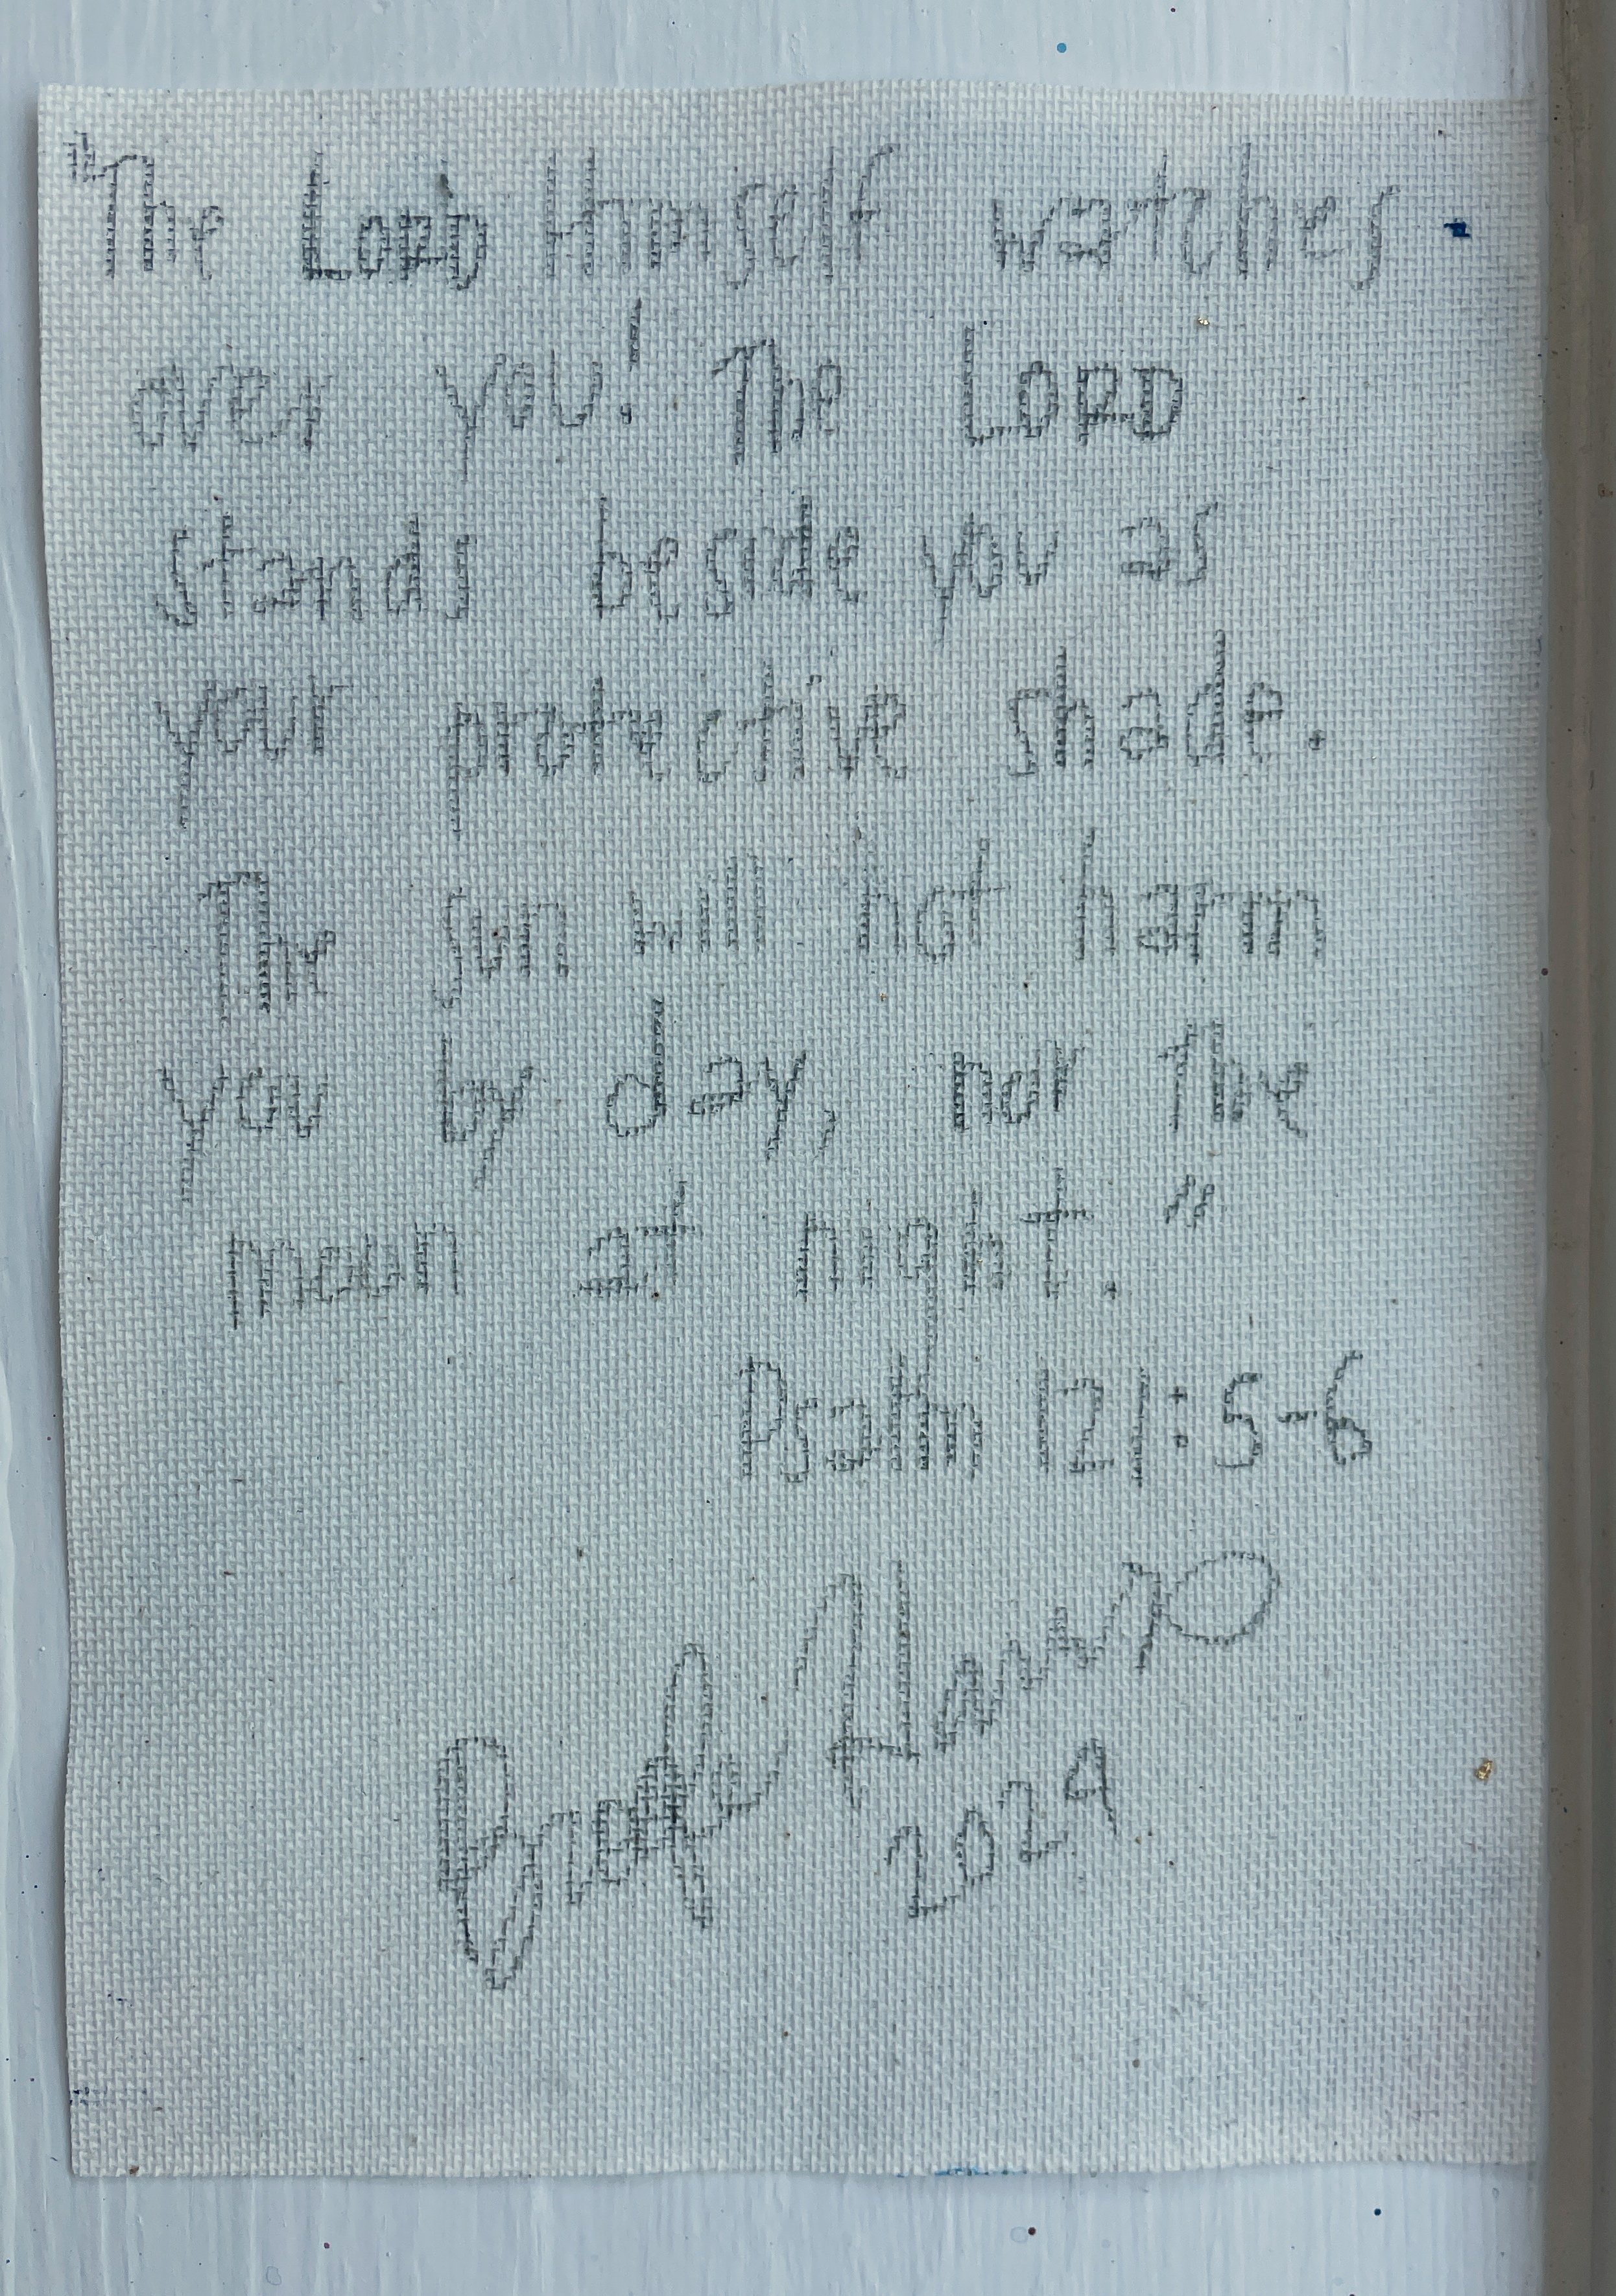 "The LORD Himself watches
over you! The LORD
stands beside you as
your protective shade.
The sun will not harm
you by day, nor the
moon at night."
Psalm 121:5-6
2024